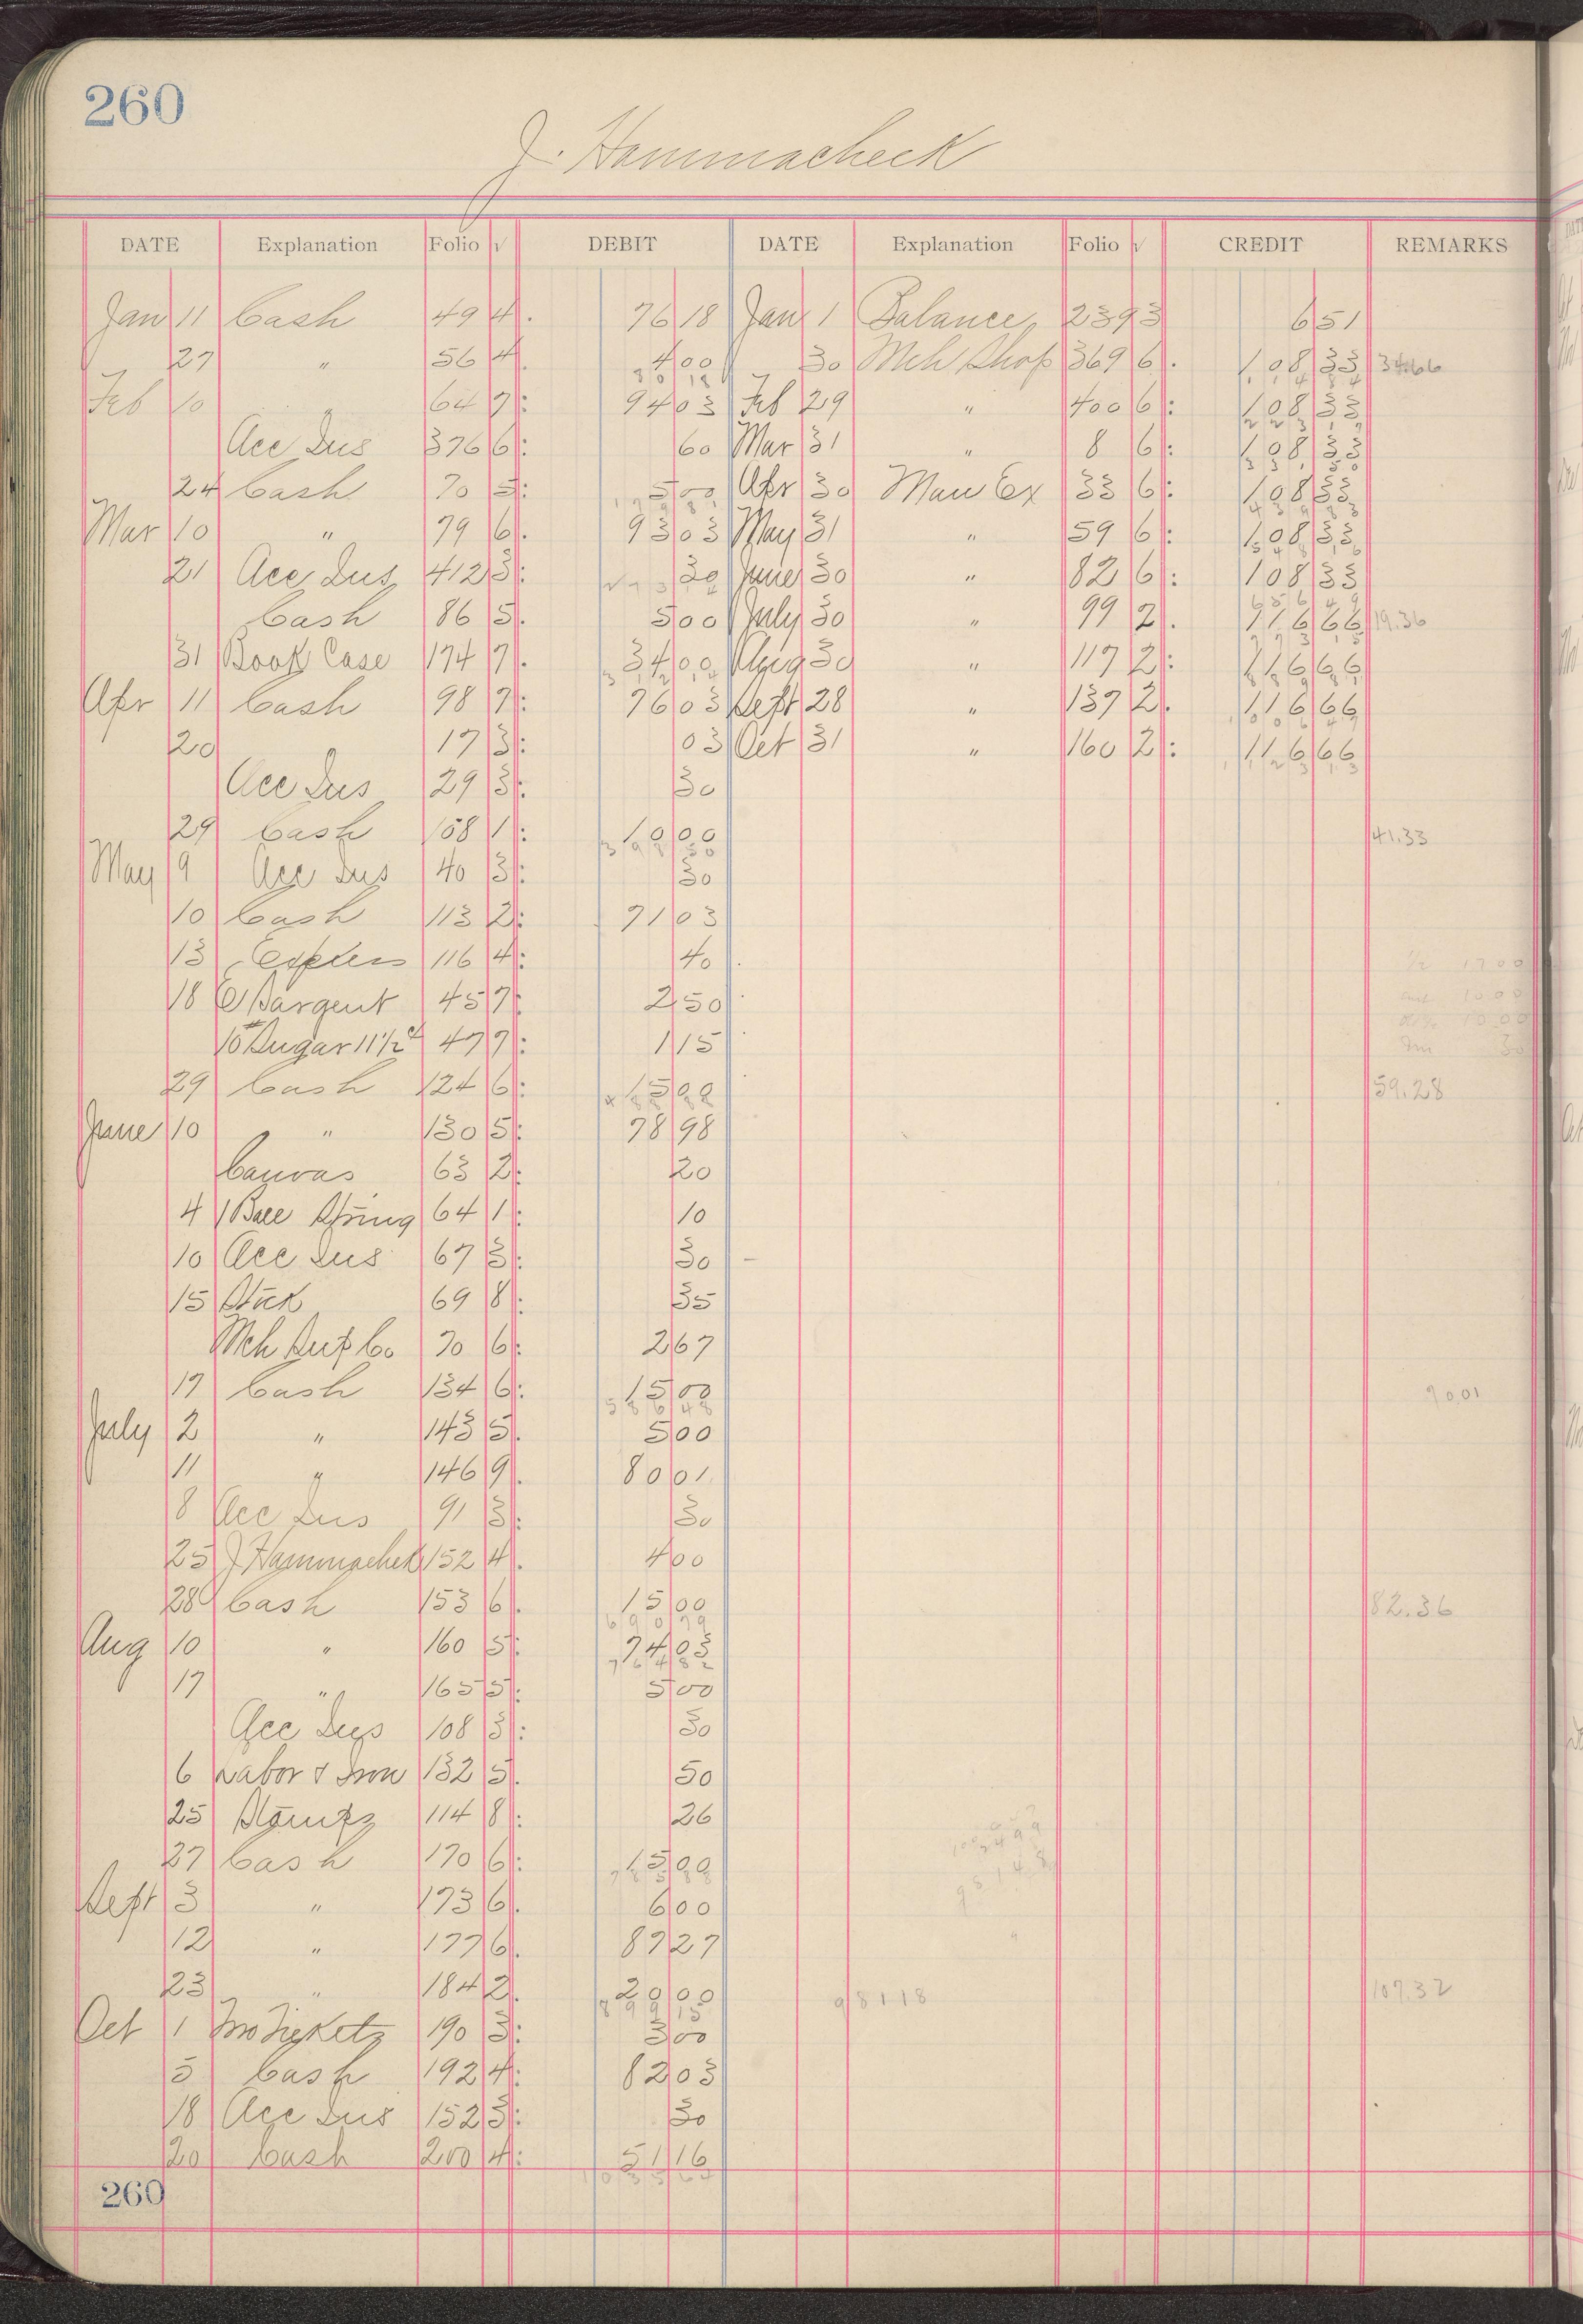 260
J. Hammacheck
DATE Explanation Folio √ DEBIT DATE Explanation Folio √ CREDIT REMARKS
Jan 11 Cash 49 4 76 18 Jan 1 Balance 239 3 6 51
27 " 56 4 4 00 30 Mch Shop 369 6 108 33 34.66
Feb 10 " 64 7 94 03 Feb 29 " 400 6 108 33
Acc Ins 376 6 60 Mar 31 " 8 6 108 33
24 Cash 70 5 5 00 Apr 30 Man Ex 33 6 108 33
Mar 10 " 79 6 93 03 May 31 " 59 6 108 33
21 Acc Ins 412 3 30 June 30 " 82 6 108 33
Cash 86 5 5 00 July 30 " 99 2 116 66 19.36
31 Book Case 174 7 34 00 Aug 30 " 117 2 116 66
Apr 11 Cash 98 7 76 03 Sept 28 " 137 2 116 66
20 17 3 03 Oct 31 " 160 2 116 66
Acc Ins 29 3 30
29 Cash 108 1 10 00 41.33
May 9 Acc Ins 40 3 30
10 Cash 113 2 71 03
13 Express 116 4 40
18 E Sargent 45 7 2 50
10# Sugar 11½c 47 7 1 15
29 Cash 124 6 15 00 59.28
June 10 " 130 5 78 98
Canvas 63 2 20
4 1 Ball String 64 1 10
10 Acc Ins 67 3 30
15 Stick 69 8 35
Mch Sup Co 70 6 2 67
17 Cash 134 6 15 00 70 01
July 2 " 143 5 5 00
11 " 146 9 80 01
8 Acc Ins 91 3 30
25 J Hammachek 152 4 4 00
28 Cash 153 6 15 00 82.36
69 0 79
Aug 10 " 160 5 74 03
76 4 82
17 " 165 5 5 00
Acc Ins 108 3 30
6 Labor & Iron 132 5 50
25 Stamps 114 8 26
27 Cash 170 6 15 00
Sept 3 " 173 6 6 00
12 " 177 6 87 27
23 " 184 2 20 00 981 18 107.32
899 15
Oct 1 Tickets 190 3 3 00
5 Cash 192 4 82 03
18 Acc Ins 152 3 30
20 Cash 200 4 51 16
1035 64
260